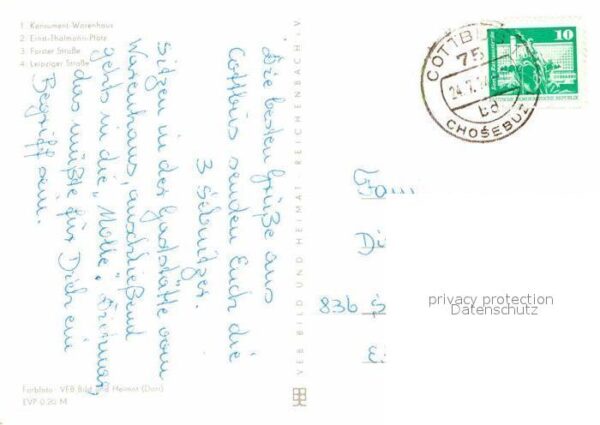 1 Konsument-Warenhaus
2 Ernst-Thälmann-Platz
3 Forster Straße
4 Leipziger Straße
Die besten Grüße aus
Cottbus senden Euch die
3 Sebnitzer.
Sitzen in der Gaststätte vom
Warenhaus, anschließend
gehts in die "Molle".
das müßte für Dich ein
Begriff sein.
Farbfoto: VEB Bild und Heimat (Darr)
EVP 0.20 M
VEB BILD UND HEIMAT · REICHENBACH i. V.
COTTBUS
75
bd
CHOŚEBUZ
10
DEUTSCHE DEMOKRATISCHE REPUBLIK
Fam
836
privacy protection
Datenschutz